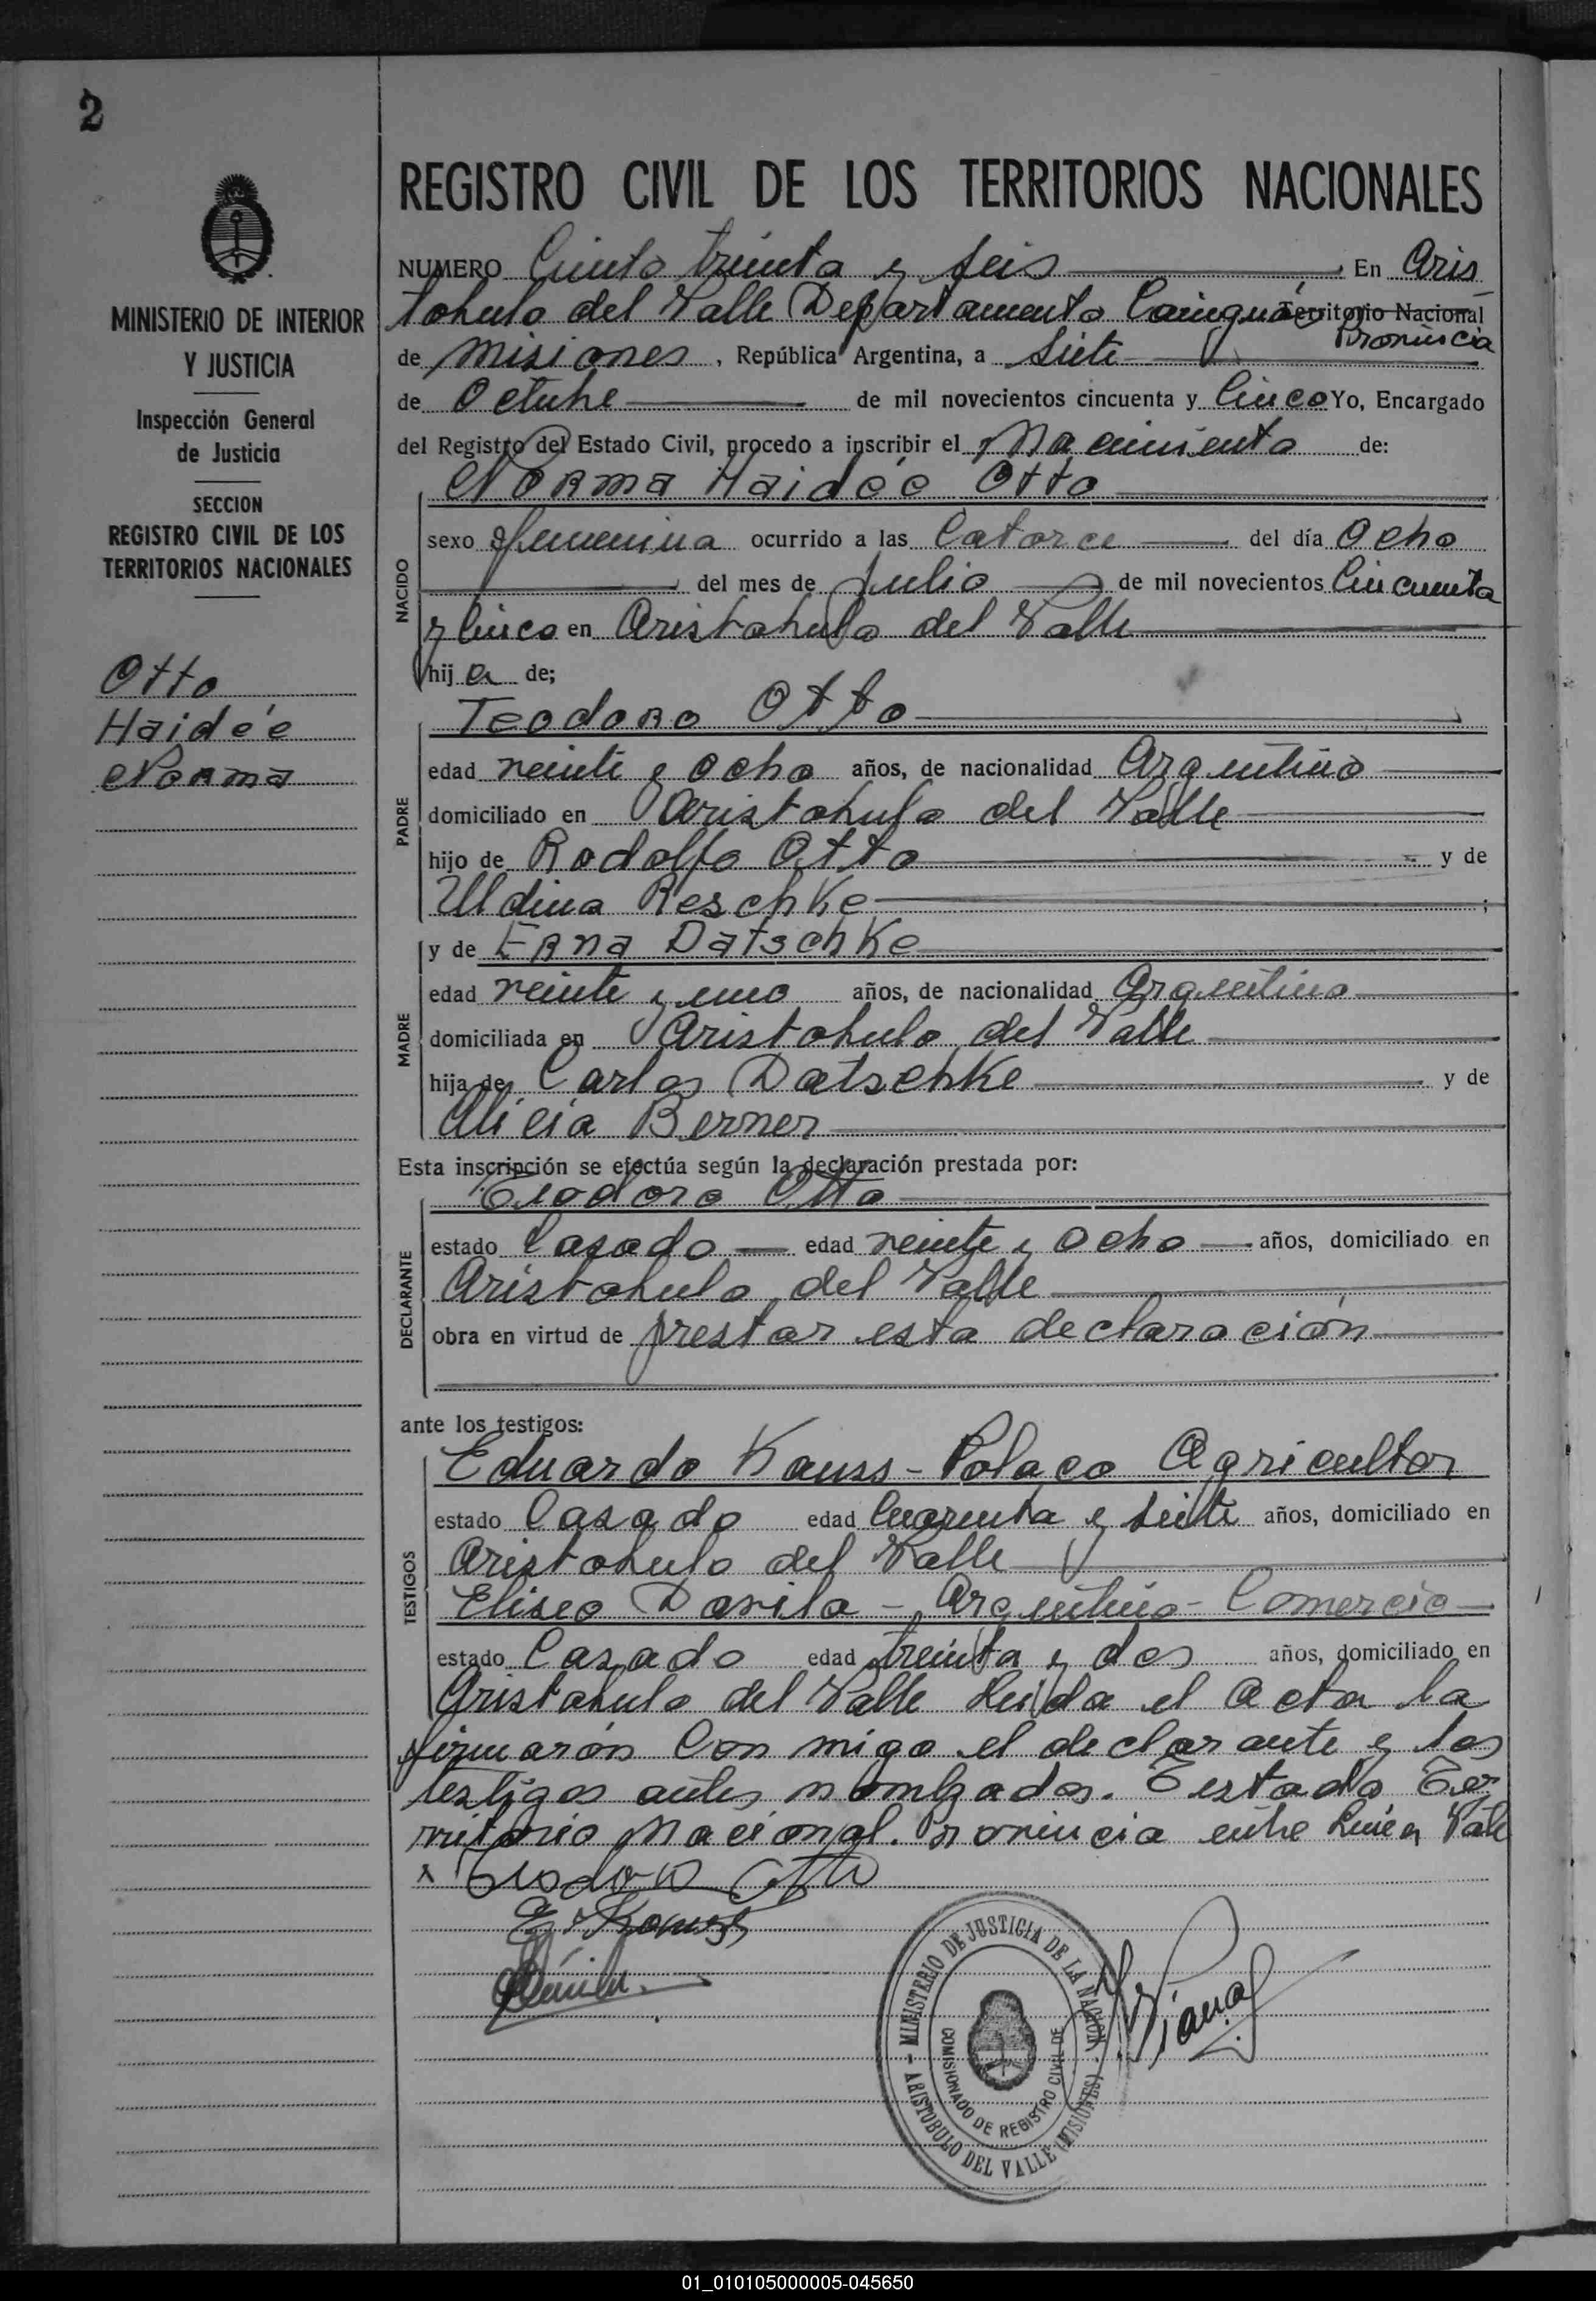 2
MINISTERIO DE INTERIOR
Y JUSTICIA
Inspección General
de Justicia
SECCION
REGISTRO CIVIL DE LOS
TERRITORIOS NACIONALES
Otto
Haidée
Norma
REGISTRO CIVIL DE LOS TERRITORIOS NACIONALES
NUMERO Ciento treinta y seis En Aris
tobulo del Valle Departamento Cainguás Territorio Nacional
Provincia
de Misiones, República Argentina, a siete
de Octubre de mil novecientos cincuenta y Cinco Yo, Encargado
del Registro del Estado Civil, procedo a inscribir el Nacimiento de:
Norma Haidée Otto
NACIDO
sexo femenina ocurrido a las Catorce del día Ocho
del mes de Julio de mil novecientos Cincuenta
y Cinco en Aristobulo del Valle
hij a de;
PADRE
Teodoro Otto
edad veinte y ocho años, de nacionalidad Argentino
domiciliado en Aristobulo del Valle
hijo de Rodolfo Otto y de
Uldina Reschke ;
MADRE
y de Erna Datschke
edad veinte y uno años, de nacionalidad Argentina
domiciliada en Aristobulo del Valle
hija de Carlos Datschke y de
Alicia Berner
Esta inscripción se efectúa según la declaración prestada por:
DECLARANTE
Teodoro Otto
estado Casado edad veinte y ocho años, domiciliado en
Aristobulo del Valle
obra en virtud de prestar esta declaración
ante los testigos:
TESTIGOS
Eduardo Kauss - Polaco Agricultor
estado Casado edad Cuarenta y siete años, domiciliado en
Aristobulo del Valle
Eliseo Davila - Argentino - Comercio
estado Casado edad treinta y dos años, domiciliado en
Aristobulo del Valle Leida el Acta la
firmarón Con migo el declarante y los
testigos antes nombrados. Testado Te
rritorio Nacional. Provincia entre Linea Vale
x Teodoro Otto
E. Kauss
MINISTERIO DE JUSTICIA DE LA NACION
ARISTOBULO DEL VALLE (MISIONES)
COMISIONADO DE REGISTRO CIVIL DE
01_010105000005-045650